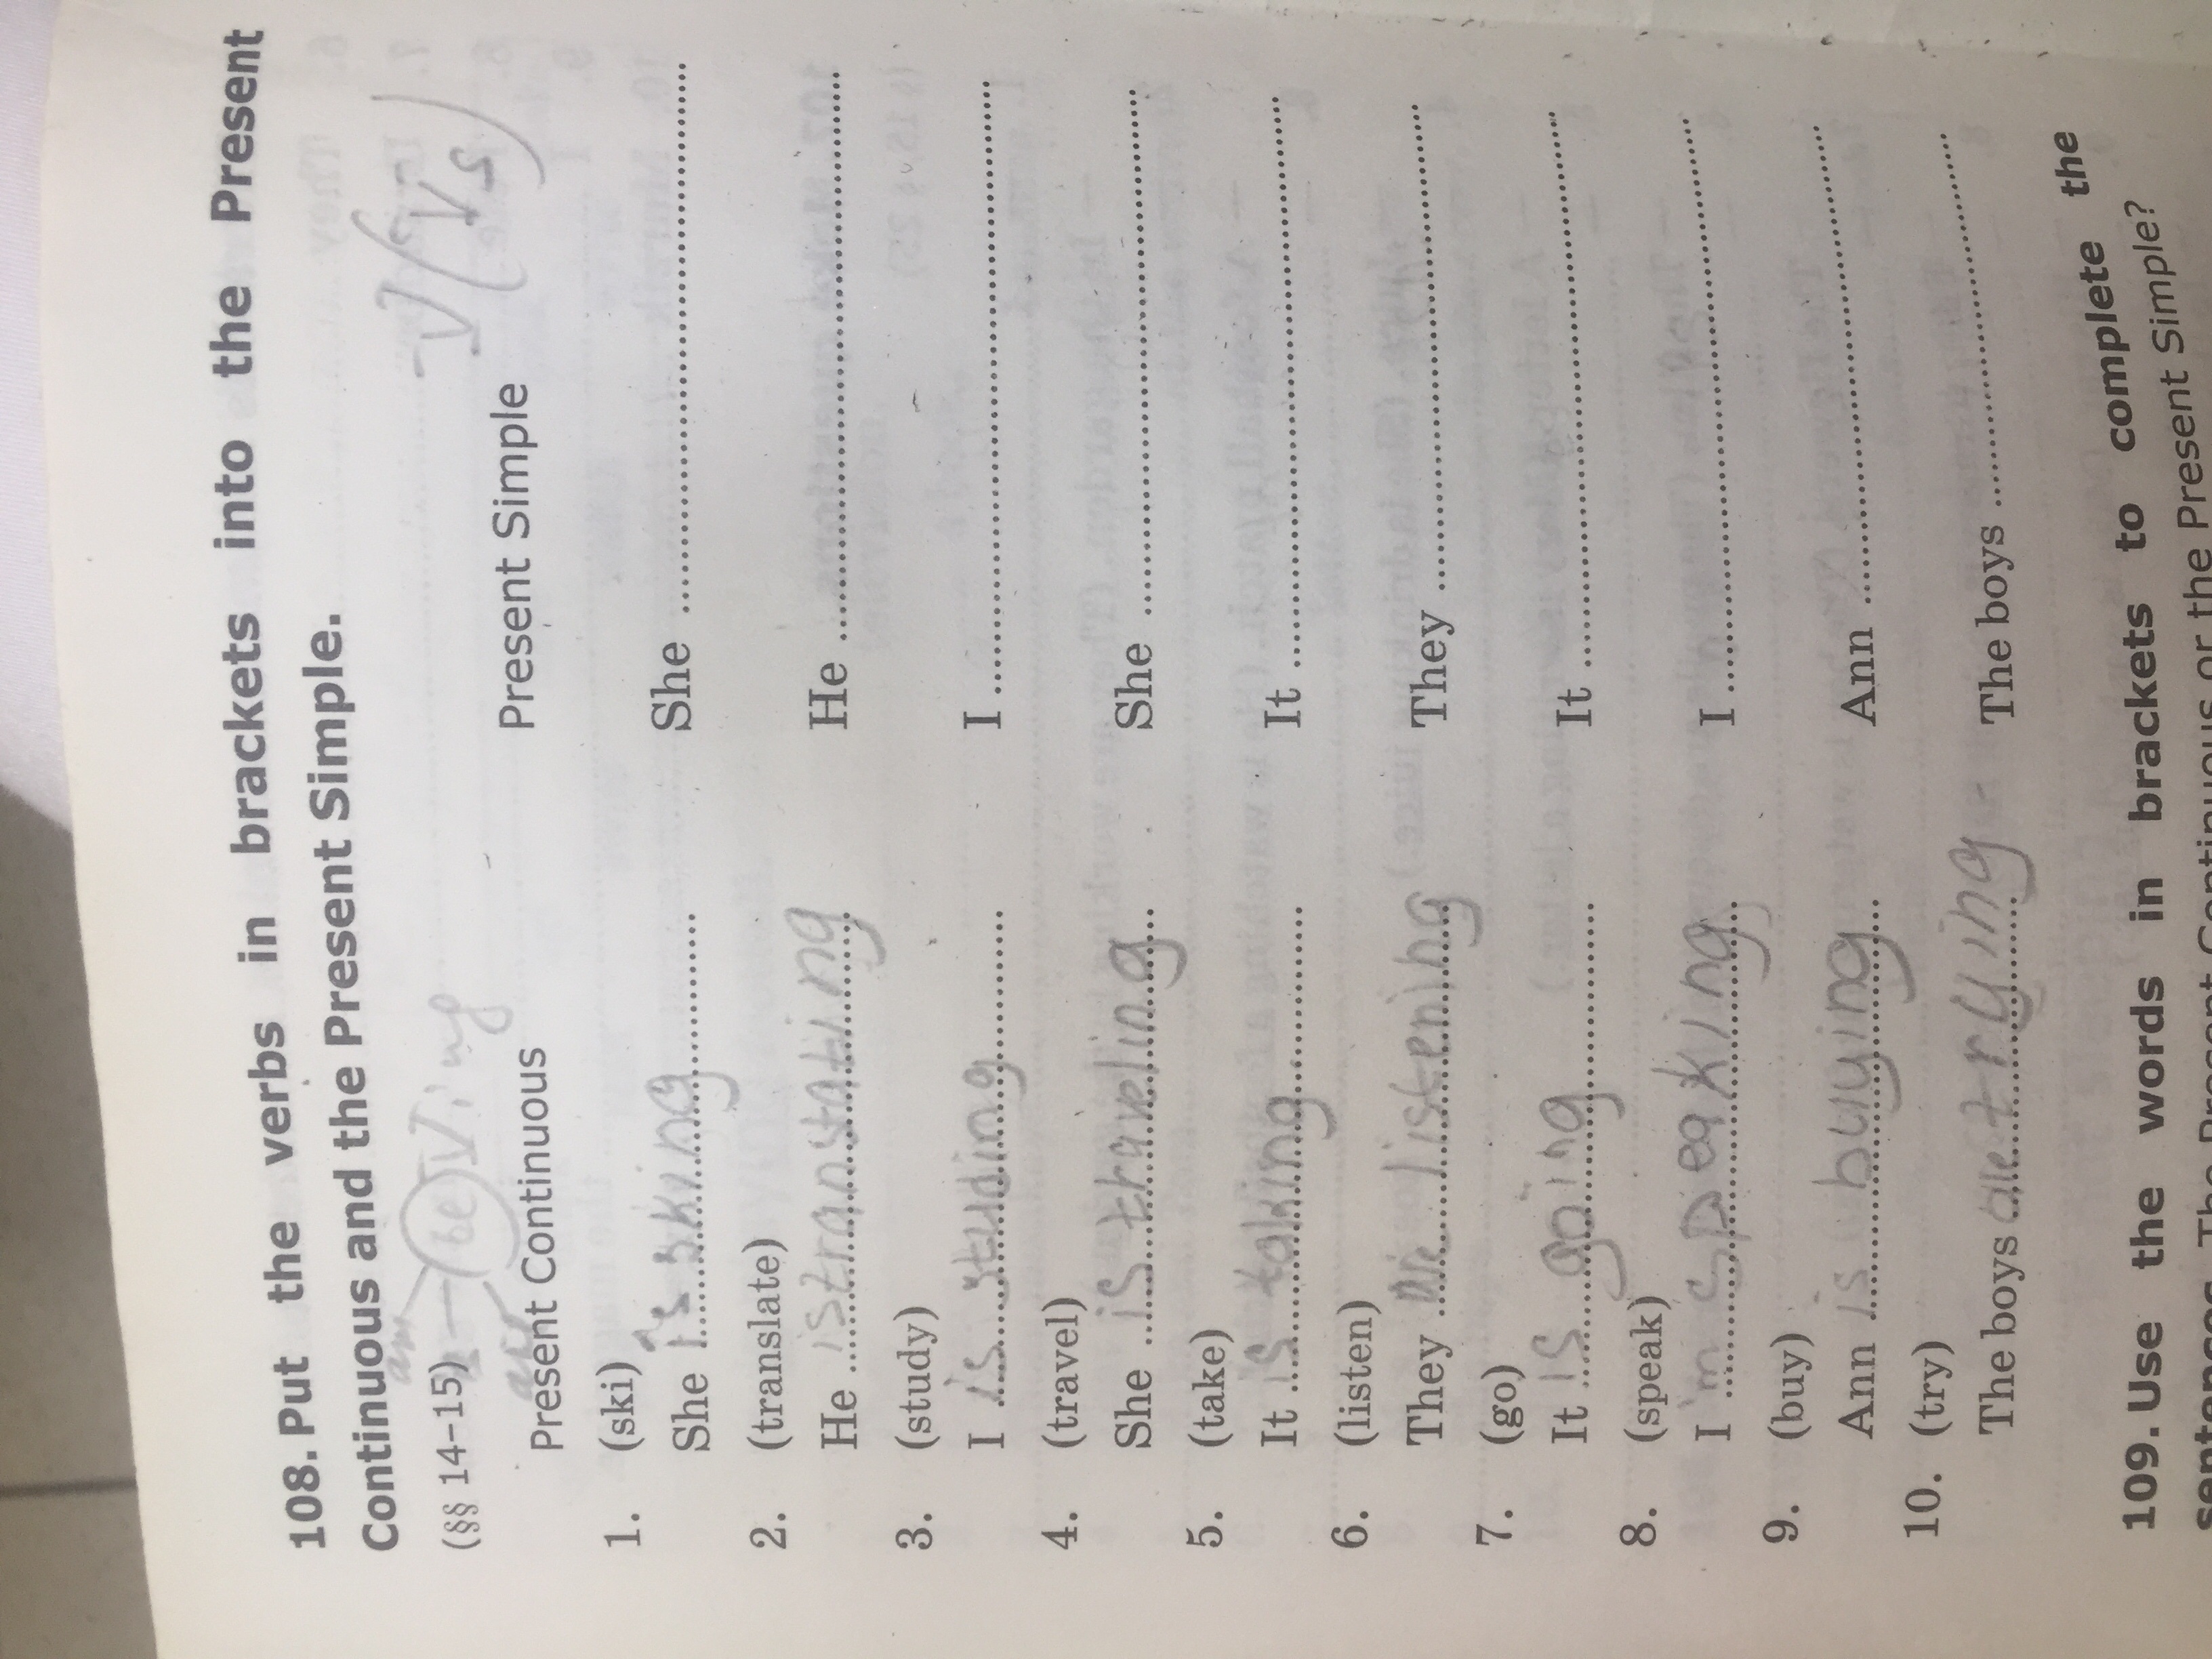 108. Put the verbs in brackets into the Present
Continuous and the Present Simple.
am
(§§ 14–15) is be Ving V(Vs)
are
Present Continuous Present Simple
1. (ski)
She is sking She
2. (translate)
He is transtating He
3. (study)
I is studing I
4. (travel)
She is traveling She
5. (take)
It is taking It
6. (listen)
They listening They
7. (go)
It is going It
8. (speak)
I 'm speaking I
9. (buy)
Ann is buying Ann
10. (try)
The boys are trying The boys
109. Use the words in brackets to complete the
sentences. The Present Continuous or the Present Simple?